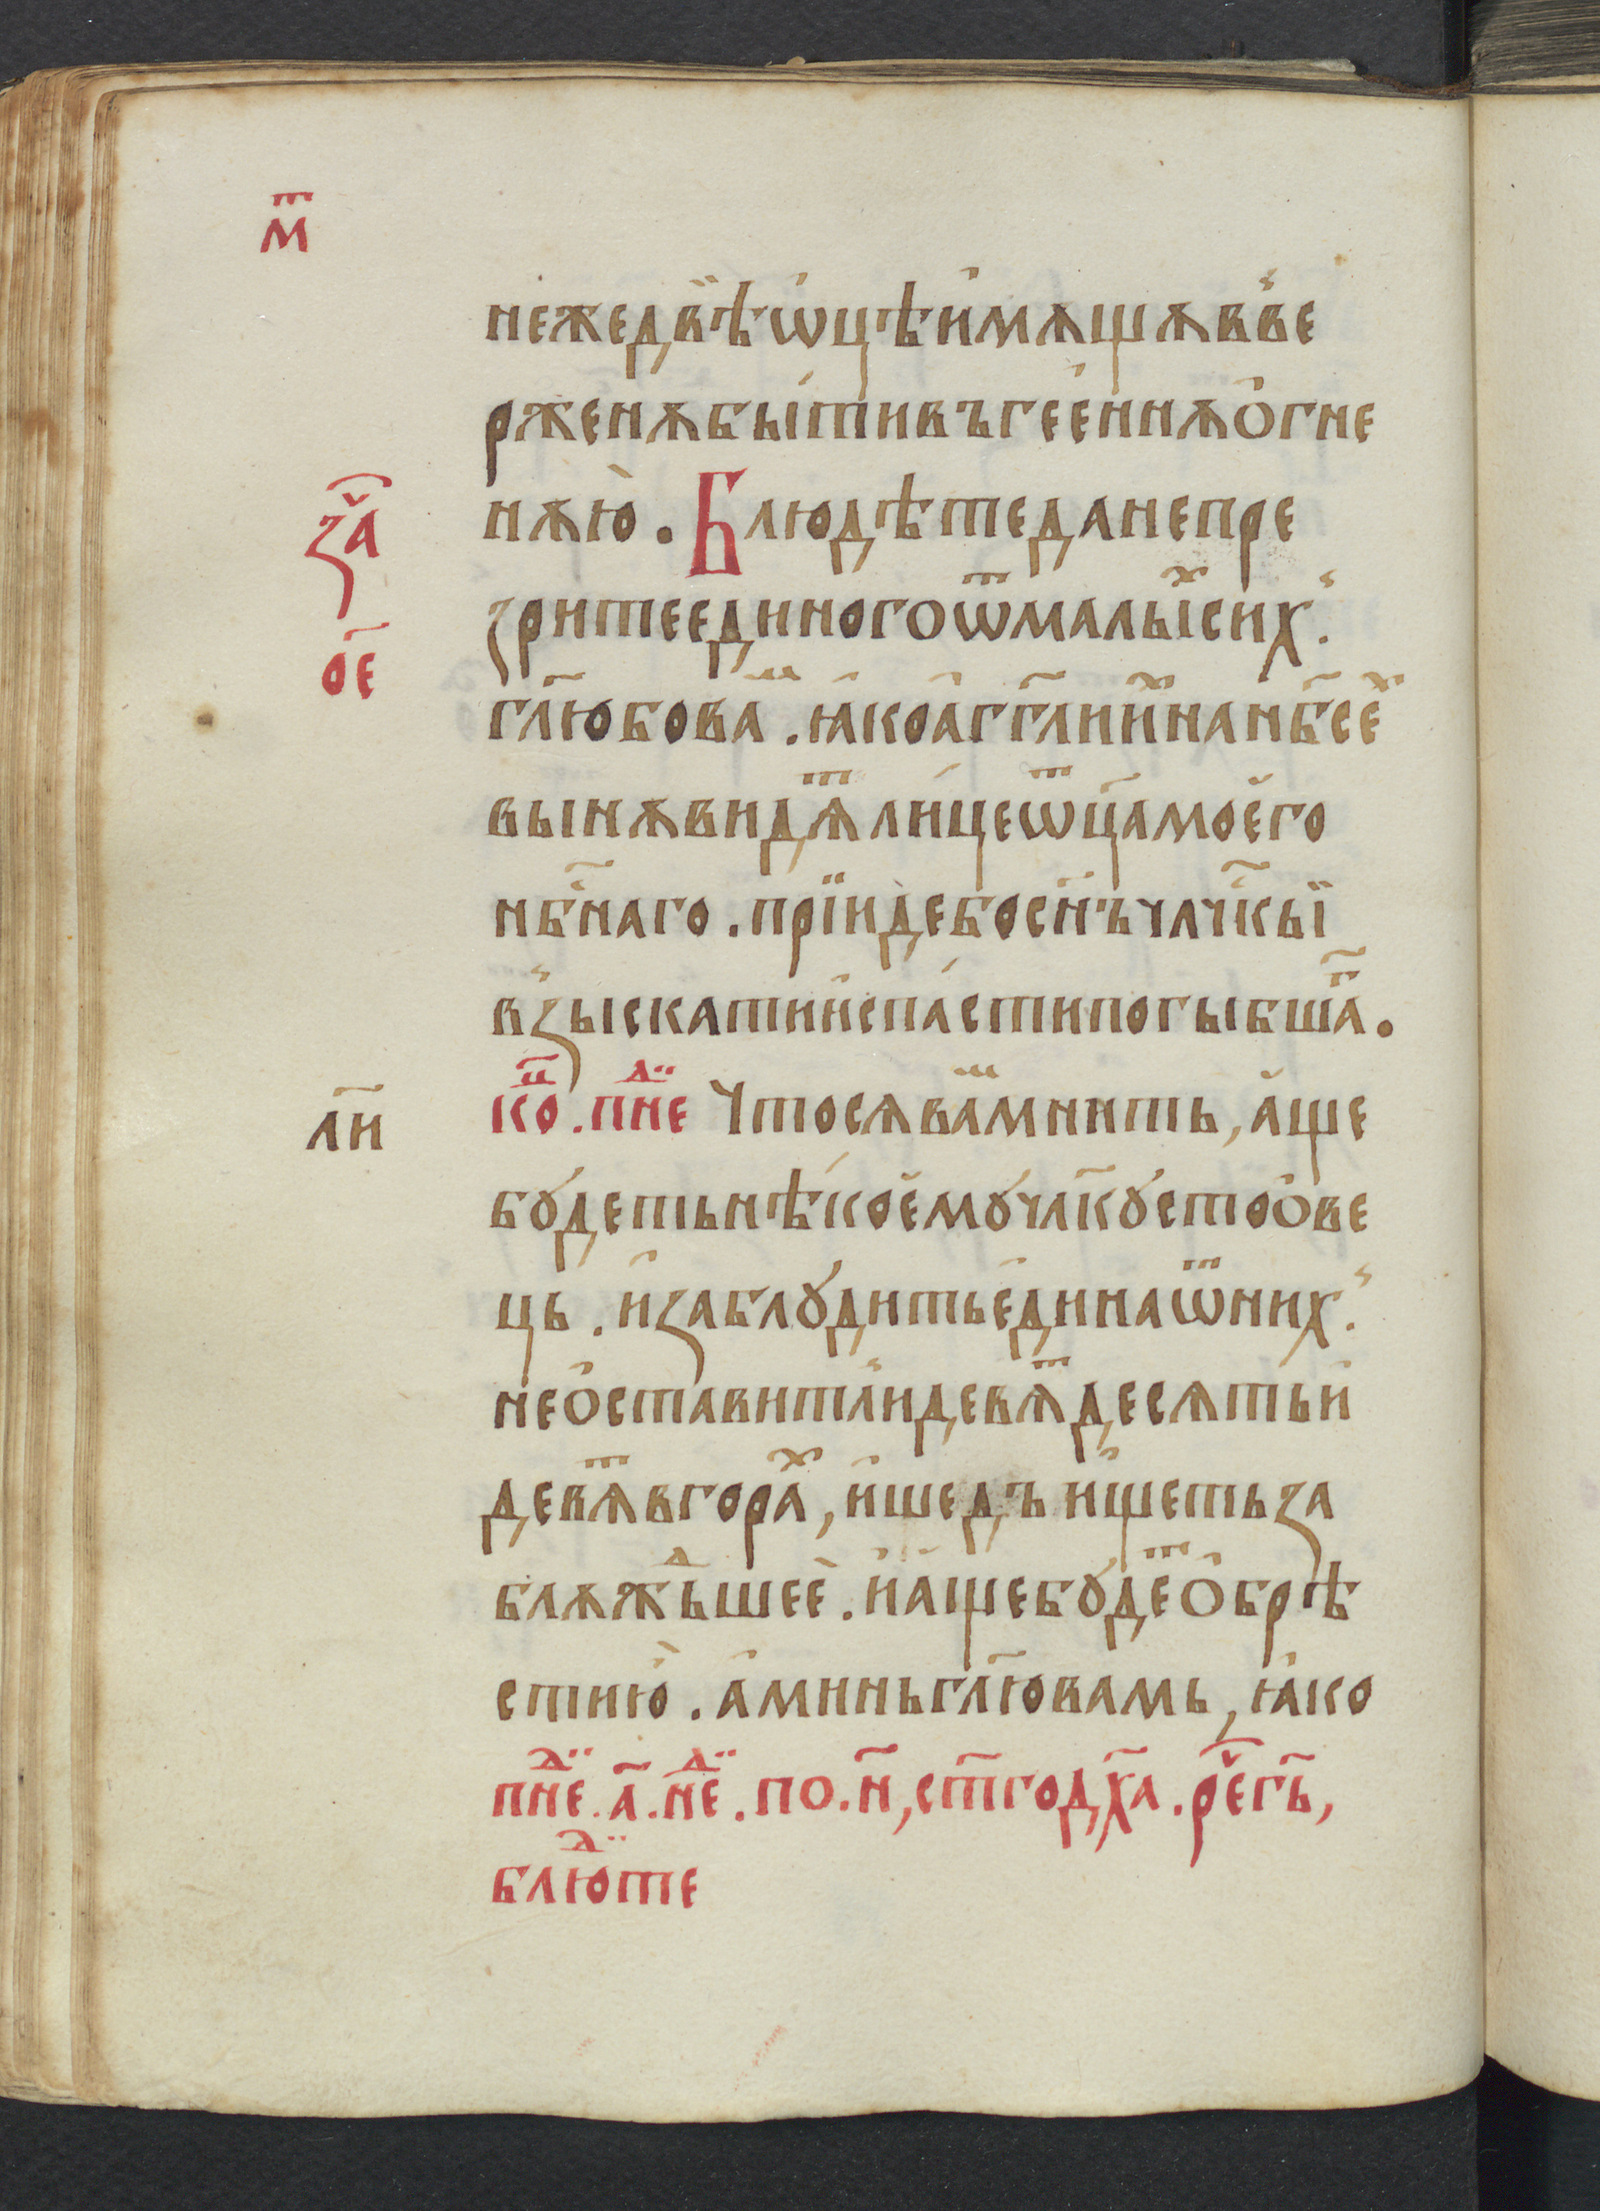 м҃ⷮ
нежедвѣ̈ѡ҆цѣи҆мѫщѫвве
рженѫбы́тивъгее́ннѫо҆гне
нѫю̀. Блюдѣтеданепре
за̑ⷱ
зритеединогоѿмалыⷯсих.
о҃е
гл҃юбоваⷨ. ꙗ҆коа҆гг҃лиⷯи҆нанб҃сеⷯ
вынѫвидѧⷮли́цеѿц҃амоего
нбⷭ҇наго. прїидебосн҃ъчл҃чкыⷭ҇ї
взыскатии҆спа́стипогыбшаⷢ҇.
л҃и
коⷰ҇. пнеⷣ Чтосѧваⷨмнить, а҆ще
бꙋдетьнѣ́коемꙋчл҃кꙋстоо҆ве
ць. и҆заблꙋдитьеди́наѿних.
нео҆ставитлидевѧⷮдесѧтьи
девѧⷮвгораⷯ, и҆шедъ и҆щетьза
блѫжⷣьшеè. и҆а҆щебꙋдеⷮо҆брѣ
стиюⷤ̀. а҆миньгл҃ювамь, ꙗ҆ко
пнеⷣ. а҃. неⷣ. по. н҃, ст҃годх҃а. реⷱ҇гь҃,
блюⷣте